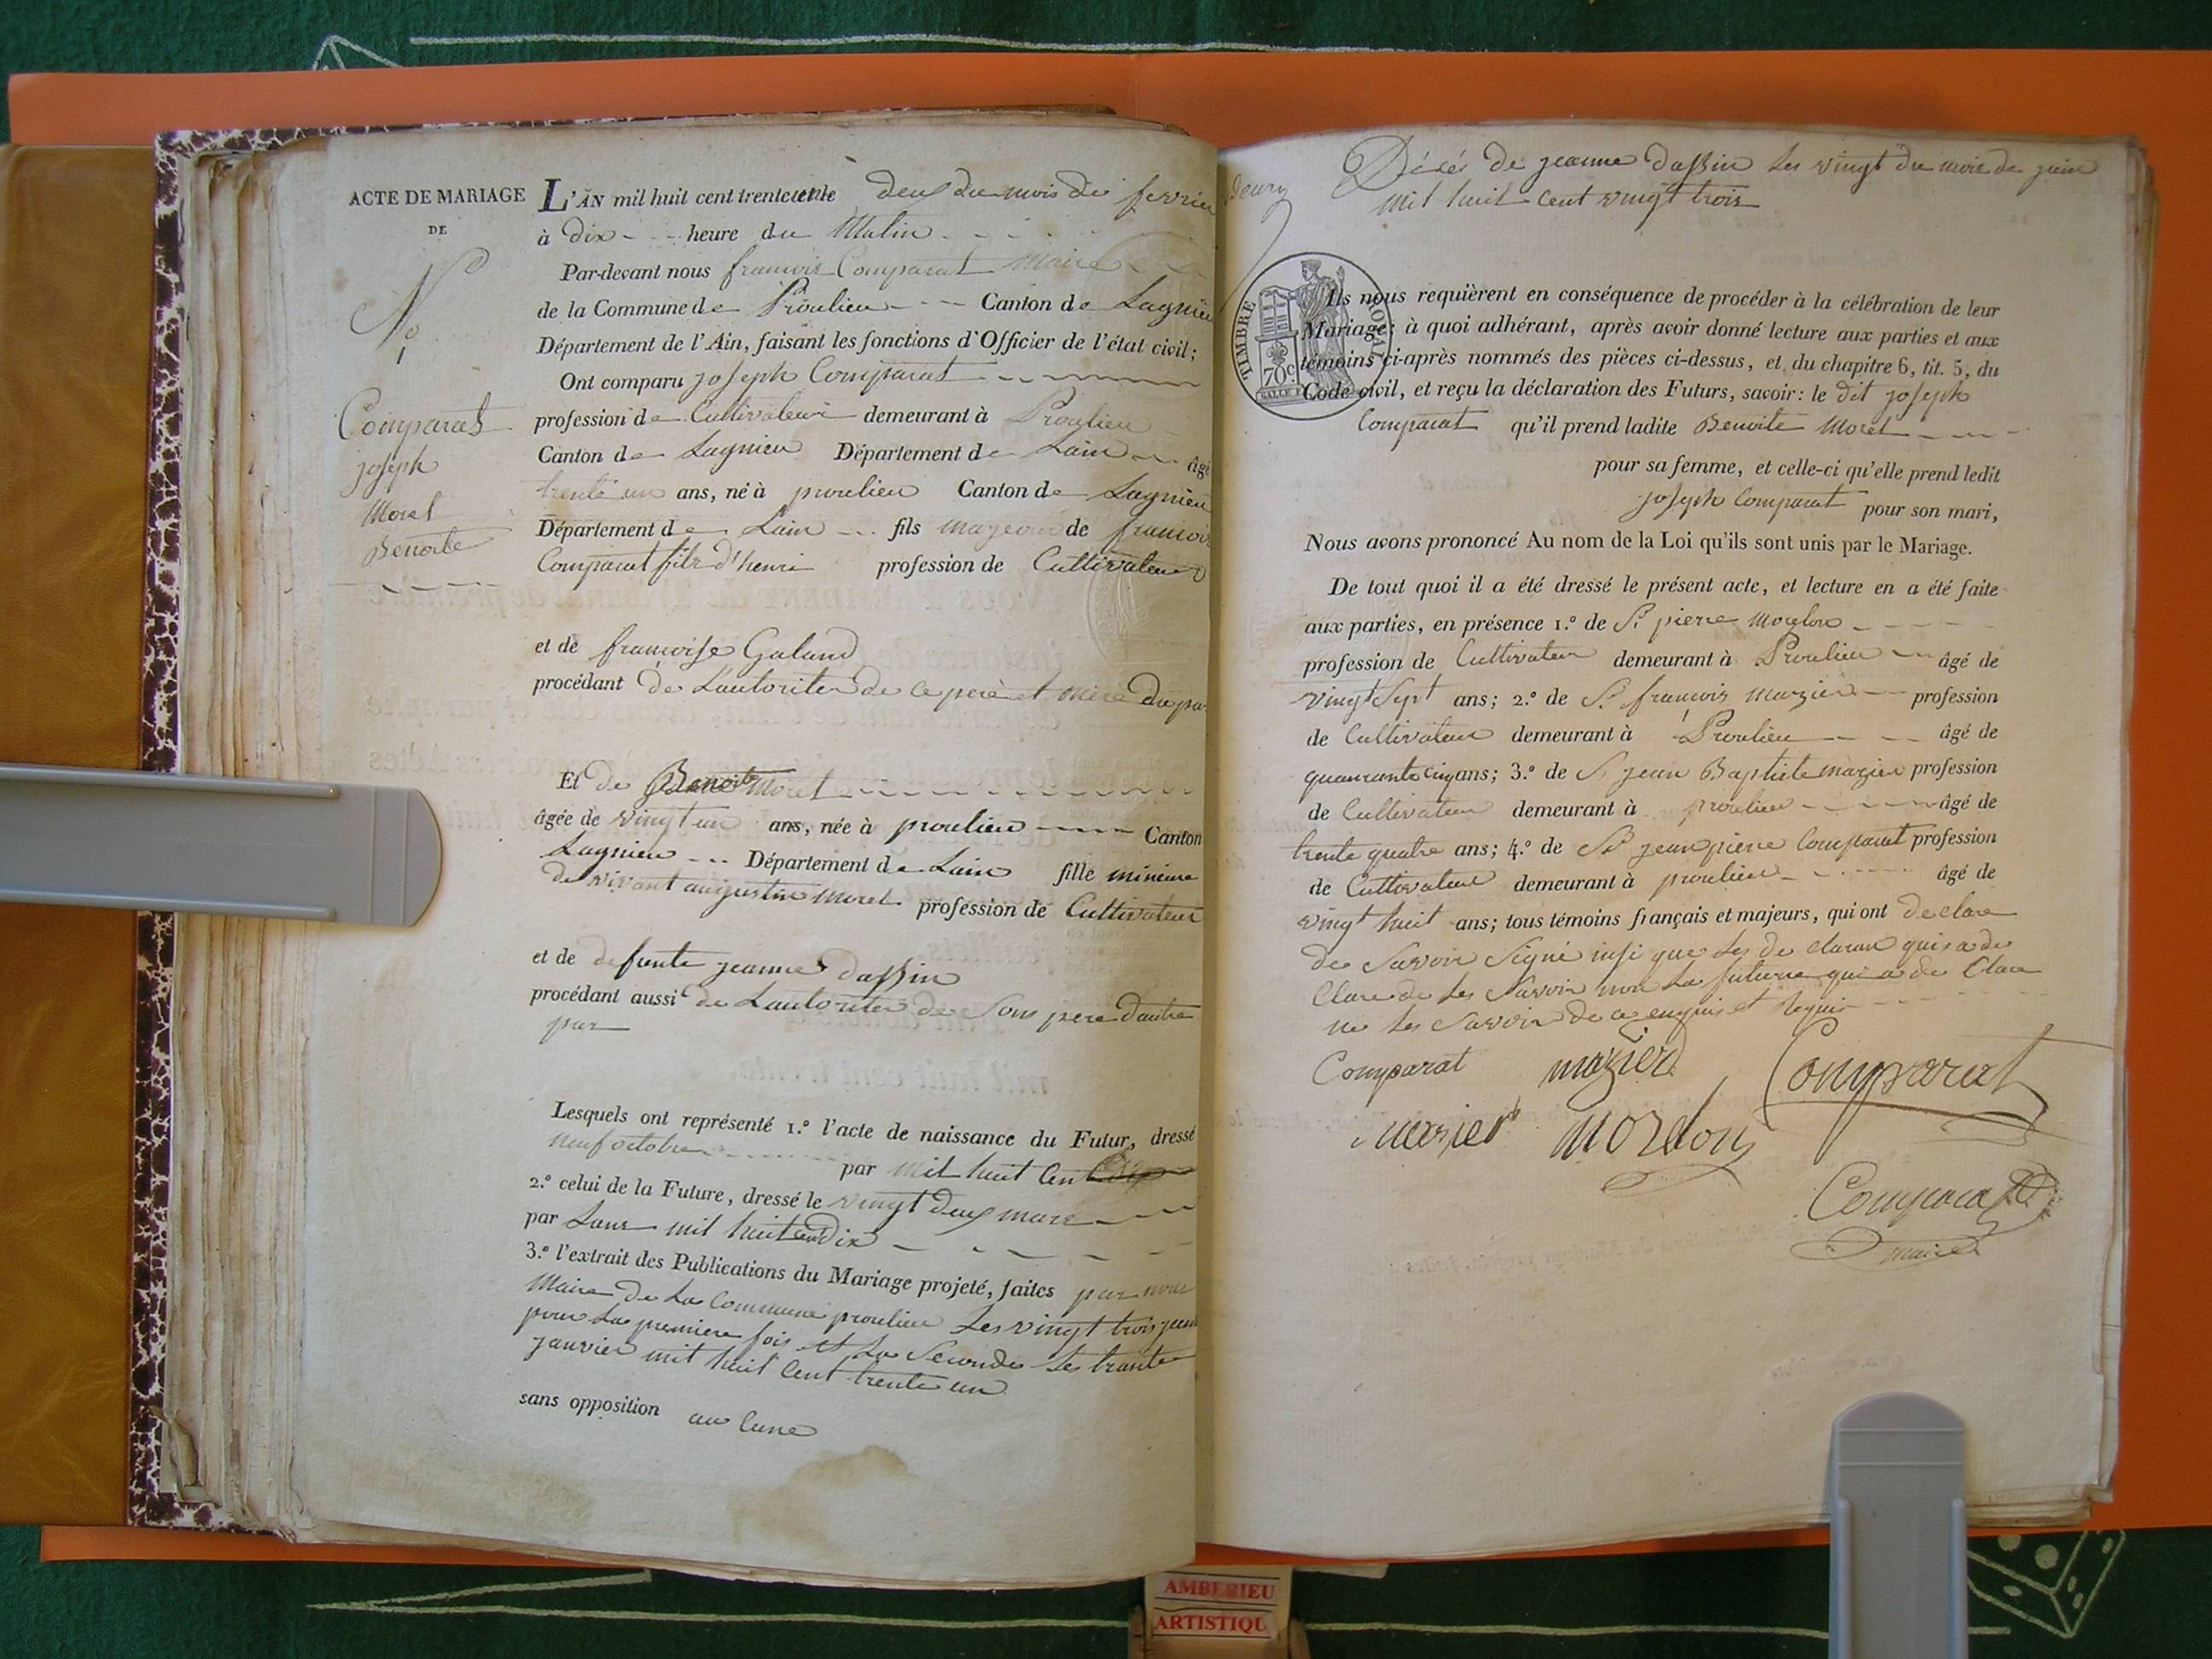 ACTE DE MARIAGE
DE
N.o
1
Comparat
joseph
Morel
Benoite
L'AN mil huit cent trente deux du mois de fevrier
à dix heure du Matin
Par-devant nous francois Comparat Maire
de la Commune de Proulieu Canton de Lagnieu
Département de l'Ain, faisant les fonctions d'Officier de l'état civil;
Ont comparu joseph Comparat
profession de Cultivateur demeurant à Proulieu
Canton de Lagnieu Département de Lain âgé
trente un ans, né à proulieu Canton de Lagnieu
Département de Lain fils mageour de francois
Comparat fils d'henri profession de Cultivateur
et de francoise Galand
procédant de Lautoriter de ce pere et mere du par
Et de Benoite Morel
âgée de vingt un ans, née à proulieu Canton
Lagnieu Département de Lain fille mineure
de vivant augustin morel profession de Cultivateur
et de defunte jeanne dassin
procédant aussi de Lautoriter de Son pere dautre
par
Lesquels ont représenté 1.º l'acte de naissance du Futur, dressé
neuf octobre par mil huit cent
2.º celui de la Future, dressé le vingt deux mars
par Lans mil huit cent dix
3.º l'extrait des Publications du Mariage projeté, faites par nous
Maire de La Commune proulieu Les vingt trois
pour La premiere fois et La Seconde Le trante
janvier mil huit Cent trente un
sans opposition au Cune
Décés de jeanne dassin Les vingt du mois de juin
mil huit Cent vingt trois
TIMBRE ROYAL
70c
Ils nous requièrent en conséquence de procéder à la célébration de leur
Mariage: à quoi adhérant, après avoir donné lecture aux parties et aux
témoins ci-après nommés des pièces ci-dessus, et du chapitre 6, tit. 5, du
Code civil, et reçu la déclaration des Futurs, savoir: le dit joseph
Comparat qu'il prend ladite Benoite Morel
pour sa femme, et celle-ci qu'elle prend ledit
joseph Comparat pour son mari,
Nous avons prononcé Au nom de la Loi qu'ils sont unis par le Mariage.
De tout quoi il a été dressé le présent acte, et lecture en a été faite
aux parties, en présence 1.º de S. pierre morelon
profession de Cultivateur demeurant à Proulieu âgé de
vingt Sept ans; 2.º de S. francois mazier profession
de Cultivateur demeurant à Proulieu âgé de
quamrante cinq ans; 3.º de S. jean Baptiste mazier profession
de Cultivateur demeurant à proulieu âgé de
trente quatre ans; 4.º de Sr jean pierre Comparat profession
de Cultivateur demeurant à proulieu âgé de
vingt huit ans; tous témoins français et majeurs, qui ont declare
de Savoir Signé insi que Les de claran quis a de
Clare de Les Savoir non La future qui a de Clare
ne Les Savoir de ce enquis et Requis
Comparat mazier Comparat
mazier morelon
Comparat
maire
AMBERIEU
ARTISTIQU